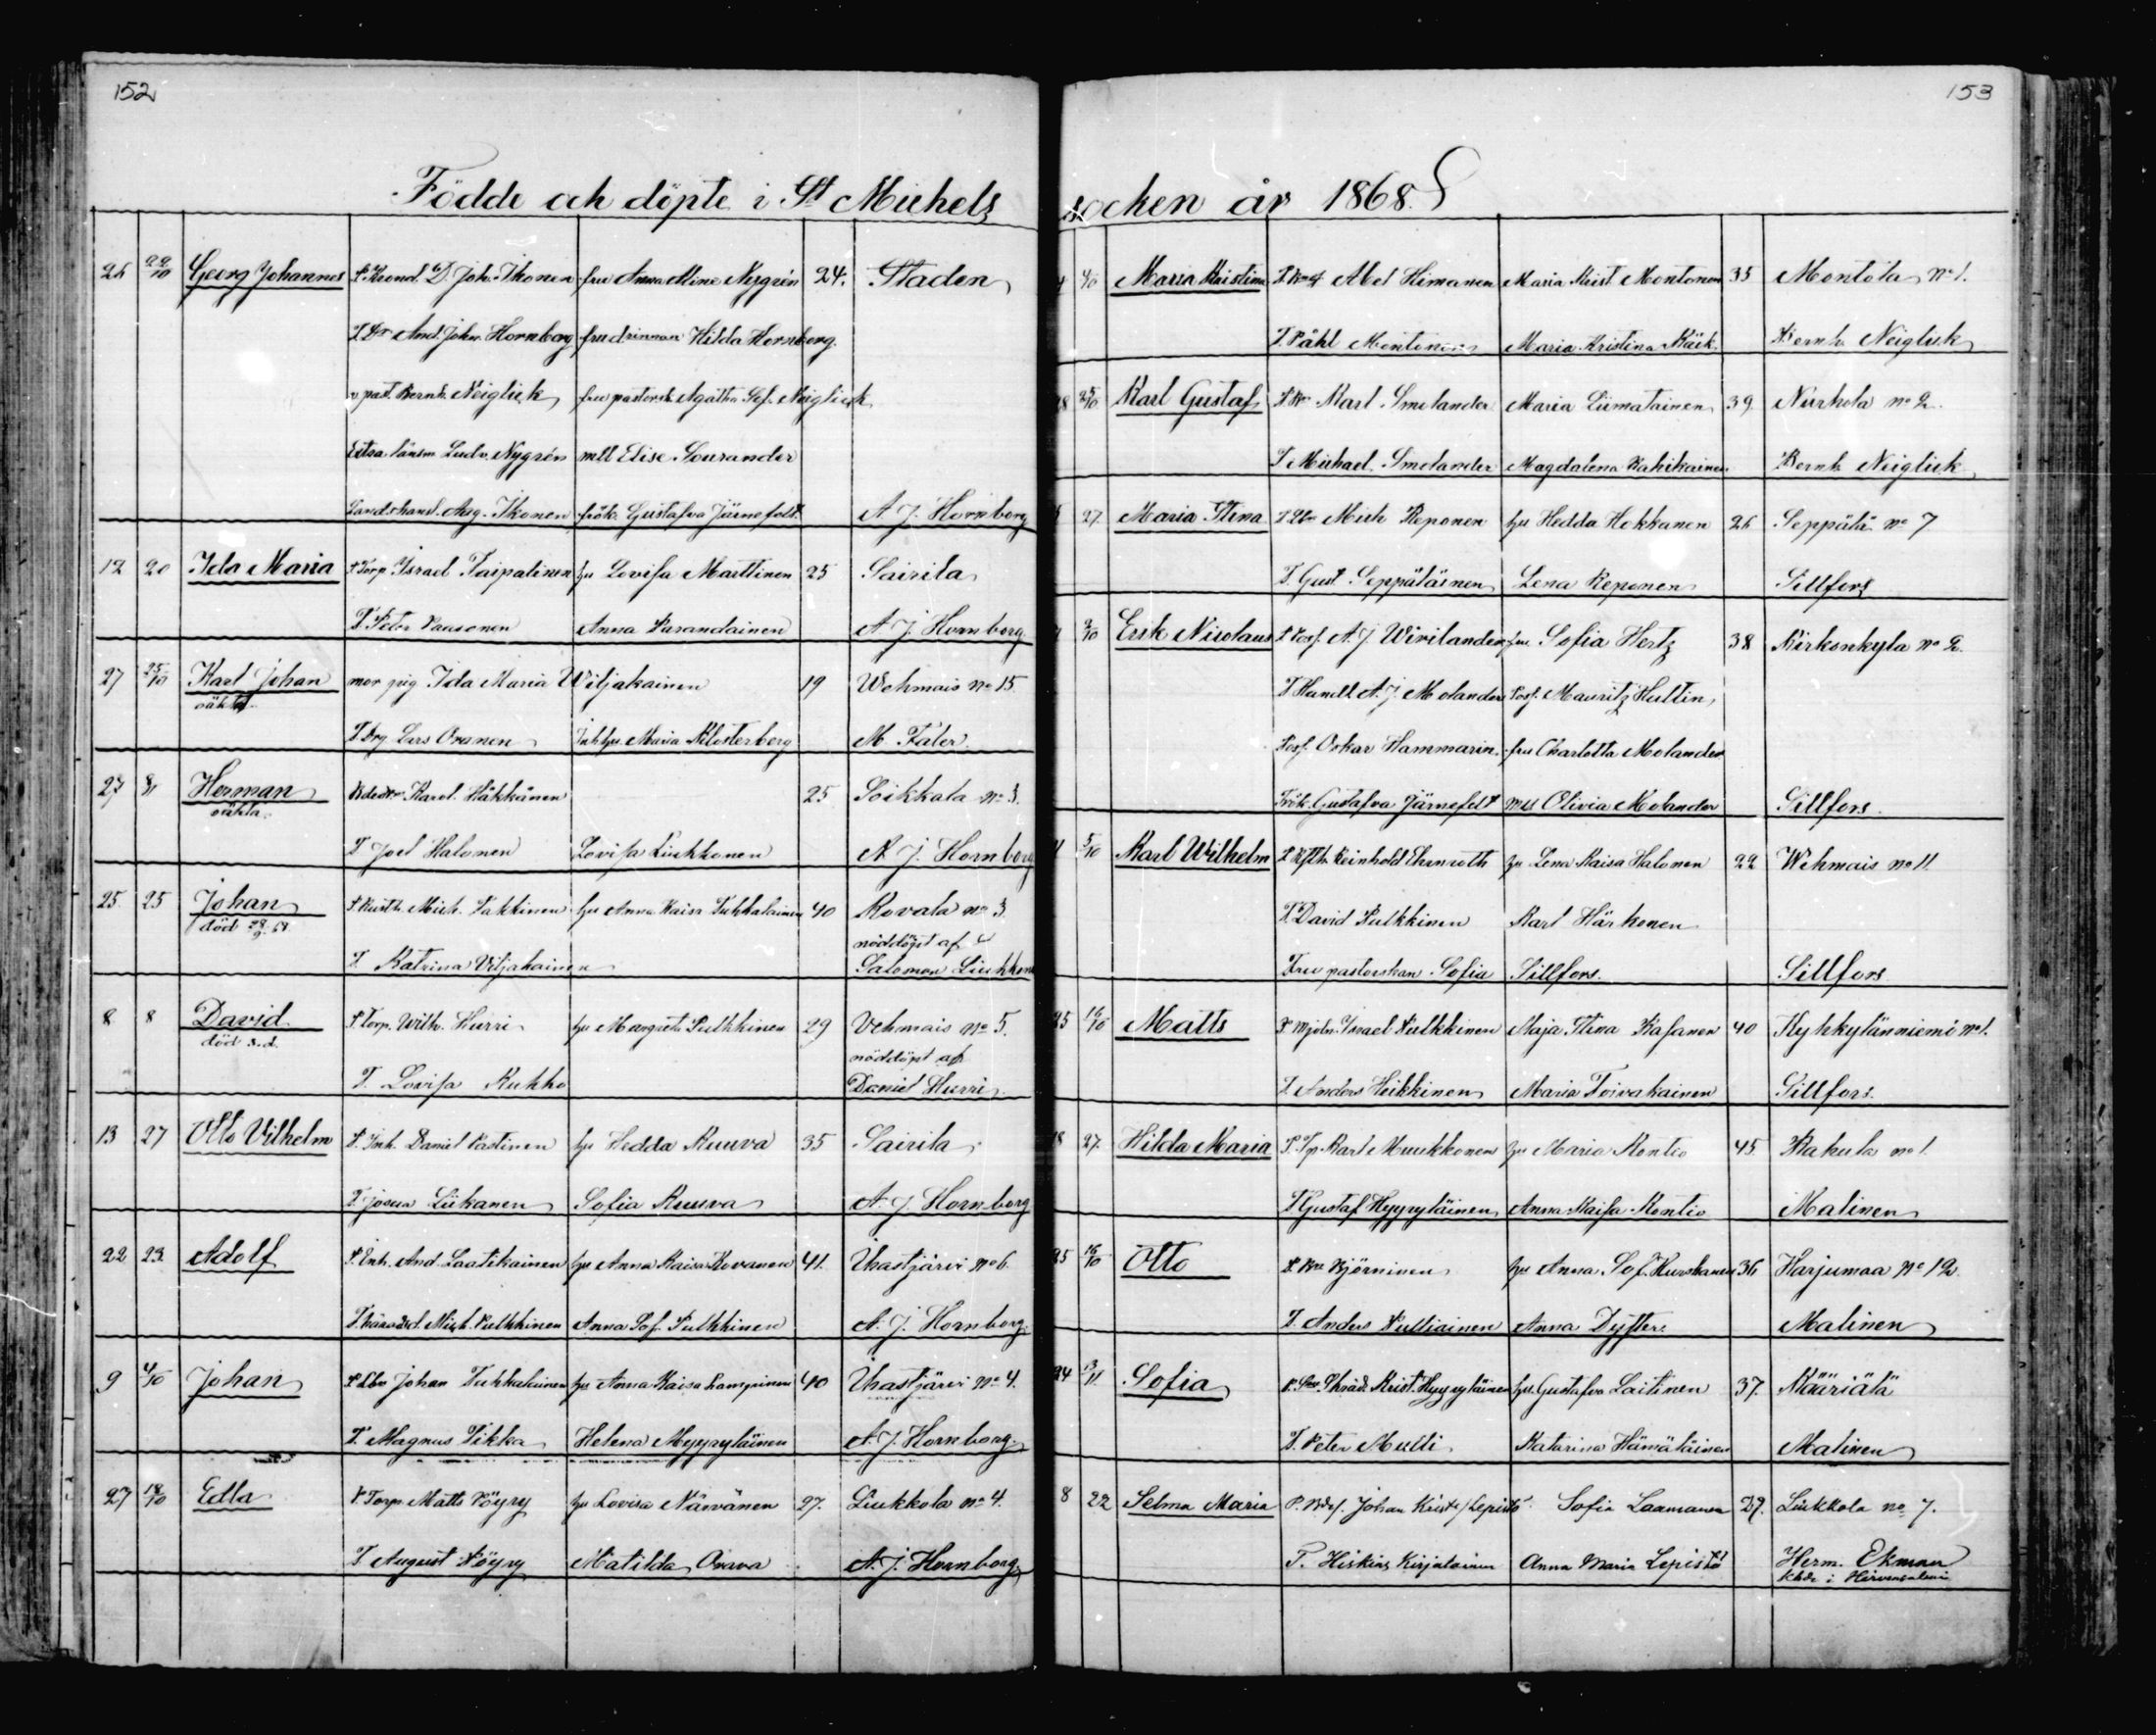 152
Födde och döpte i St Michels
26 22/10 Georg Johannes P. Krond. D. Joh. Ikonen fru Anna Mina Nygrén 24. Staden
T. Dr And. John Hornborg fru drinnan Hilda Hornborg.
v past. Bernh. Neiglick fru pastorsk. Agatha Sof. Neiglick
Extra länsm Ludv. Nygrén mll Elise Sourander
Landskansl. Aug. Ikonen frök. Gustafva Järnefelt A. J. Hornborg
12 20 Ida Maria P Torp Israel Taipalinen hu Lovisa Marttinen 25 Sairila
T. Peter Paasonen Anna Parandainen A. J. Hornborg.
27 25/10 Karl Johan mor pig Ida Maria Wiljakainen 19 Wehmais No 15.
oäkta.
T. Drg Lars Oranen Inh hu Maria Klosterberg M. Fäler.
27 8/11 Herman Karol. Häkkänen 25 Soikkala No 3.
oäkta.
T Joel Halonen Lovisa Liukkonen A. J. Hornborg
25. 25 Johan Mich. Pakkinen hu Anna Kaisa Tukkalainen 40 Rovala No 3.
död
nöddöpt af
T. Katrina Viljakainen Salomon Liukkonen
8 8 David P Torp. Wilh. Hurri hu Margreta Pulkkinen 29 Vehmais No 5.
död s. d.
nöddöpt af
T. Lovisa Kukko Daniel Hurri
13 27 Otto Vilhelm P. Inh. Daniel Partinen hu Hedda Ruuva 35 Sairila
T. Josua Liikanen Sofia Ruuva A. J. Hornborg
22 23. Adolf P. Inh. And. Laatikainen hu Anna Kaisa Kovanen 41. Ihastjärvi No 6.
T. Mich. Pulkkinen Anna Sof. Pulkkinen A. J. Hornborg.
9 4/10 Johan P Lbr Johan Tukkalainen hu Anna Kaisa Lampinen 40 Ihastjärvi No 4.
T. Magnus Tikka Helena Myyryläinen A. J. Hornborg.
27 18/10 Edla P Torp Matts Pöyry hu Lovisa Närvänen 27. Liukkola No 4.
T August Pöyry Matilda Orava A. J. Hornborg
153
socken år 1868.
4 4/10 Maria Kristina Abel Himanen Maria Krist. Montonen 35 Montola No 1.
T. Påhl Montonen Maria Kristina Käck. Bernh. Neiglick
28 25/10 Karl Gustaf P. Karl Smolander Maria Liimatainen 39. Nurhola No 2.
T Michael Smolander Magdalena Kahikainen Bernh. Neiglick
27. Maria Stina P Lbr Mich Reponen hu Hedda Hokkanen 26 Seppälä No 7
T. Gust Seppäläinen Lena Reponen Sillfors
Erik Nikolaus P Poss. A. J. Wirilander fru Sofia Hertz 38 Kirkonkylä No 2.
T Handl. A. J. Molander Poss. Mauritz Hultin
Poss. Oskar Hammarin fru Charlotta Molander
Frök. Gustafva Järnefelt mll Olivia Molander Sillfors.
5/10 Karl Wilhelm Reinhold Ehrnrooth hu Lena Kaisa Halonen 22 Wehmais No 11.
T. David Pulkkinen Karl Härkonen
Fru pastorskan Sofia Sillfors. Sillfors
25 16/10 Matts P Mjoln. Israel Pulkkinen Maja Stina Kasanen 40 Kyhkylänniemi No 1.
T. Anders Heikkinen Maria Toivakainen Sillfors.
18 27. Hilda Maria P. Tp. Karl Muukkonen hu Maria Kontio 45. Kakula No 1
T Gustaf Hyyryläinen Anna Kaisa Kontio Malinen
25 16/10 Otto Björninen hu Anna Sof. Hurskainen 36 Harjumaa No 12.
T. Anders Pulliainen Anna Dyster Malinen
24 13/11 Sofia Krist. Hyyryläinen hu. Gustafva Laitinen 37. Määriälä
T. Peter Multi Katarina Hämäläinen Malinen
8 22 Selma Maria P. Johan Lepistö Sofia Laamanen 27. Liukkola No 7.
T. Hiskias Kirjalainen Anna Maria Lepistö Herm. Ekman
i Hirvensalmi